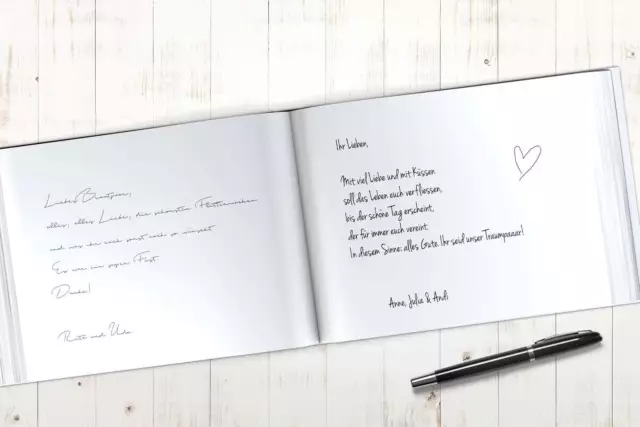 Liebes Brautpaar,
alles, alles Liebe, die schönsten Flitterwochen
und was ihr euch sonst noch so wünscht.
Es war ein super Fest.
Danke!
Ruth und Udo
Ihr Lieben,
Mit viel Liebe und mit Küssen
soll das Leben euch verfliessen,
bis der schöne Tag erscheint,
der für immer euch vereint.
In diesem Sinne: alles Gute. Ihr seid unser Traumpaaar!
Anne, Julia & Andi